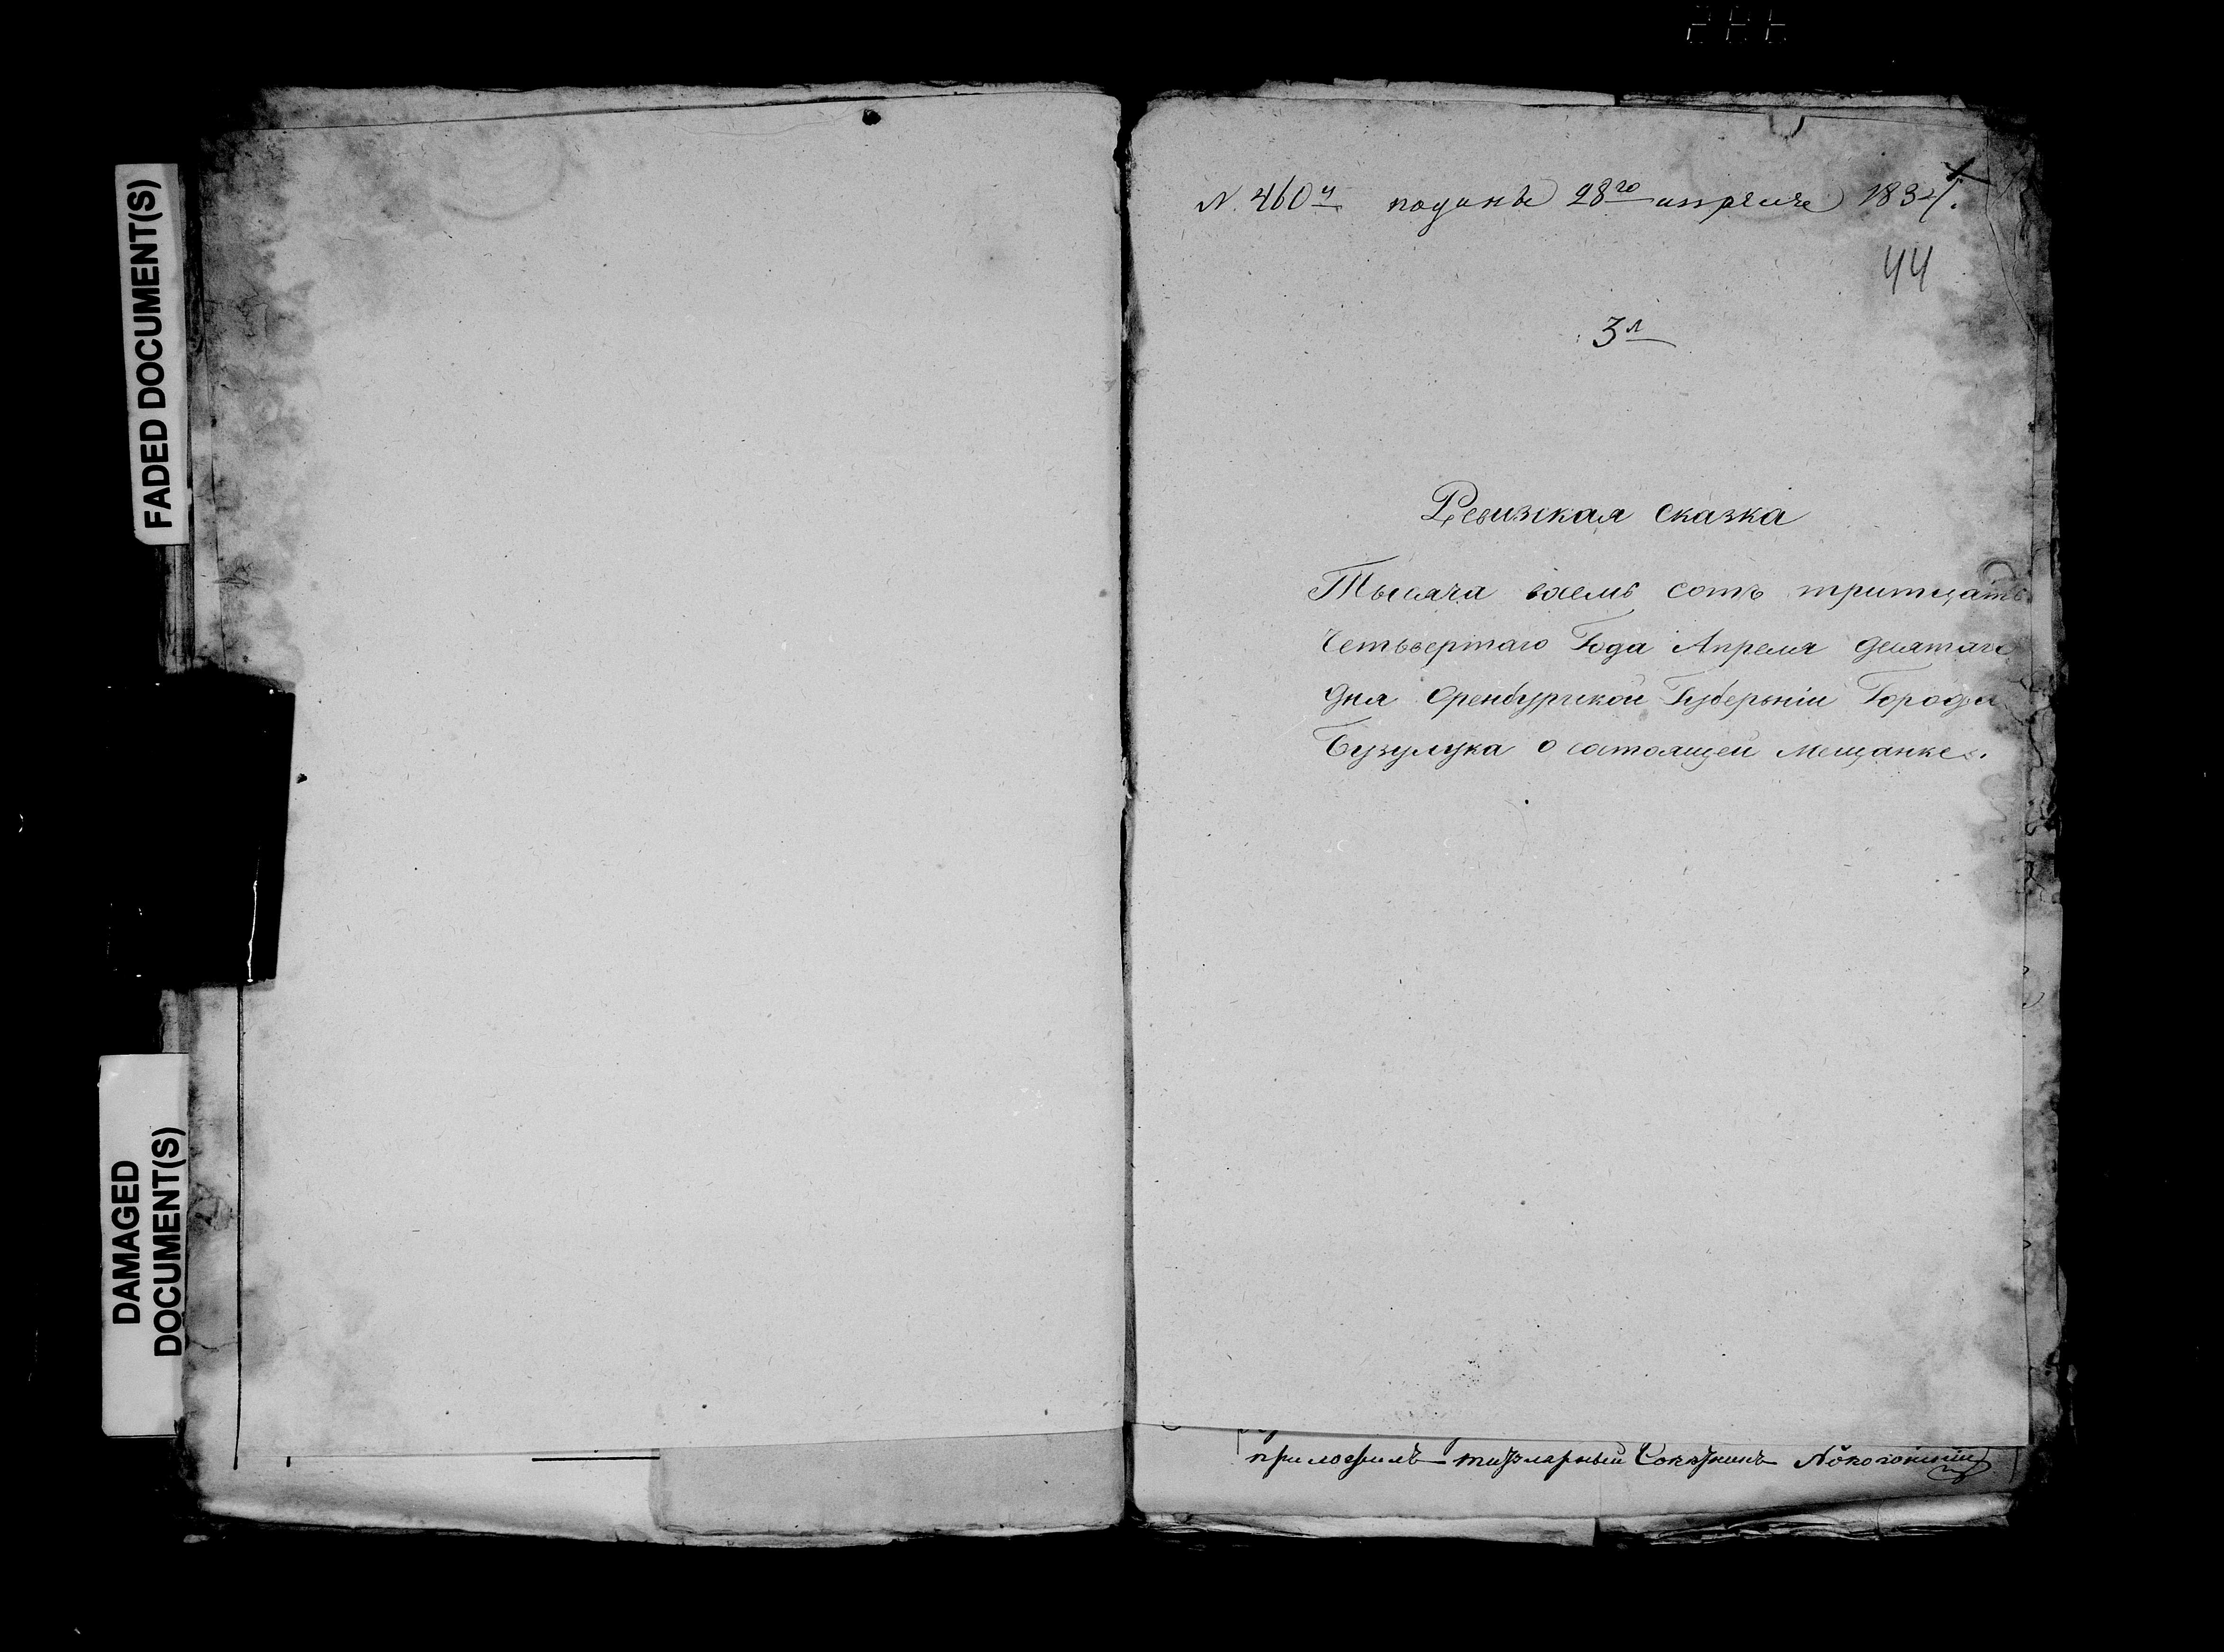 FADED DOCUMENT(S)
DAMAGED
DOCUMENT(S)
N. 460й поданы 28го апреля 1834.
44
3л
Ревизская сказка
Тысяча восемь сотъ тритцать
Четьвертаго Года Апреля десятаго
дня Оренбургской Губернiи Города
Бузулука о состоящей мещанке.
приложилъ титулярный Советникъ